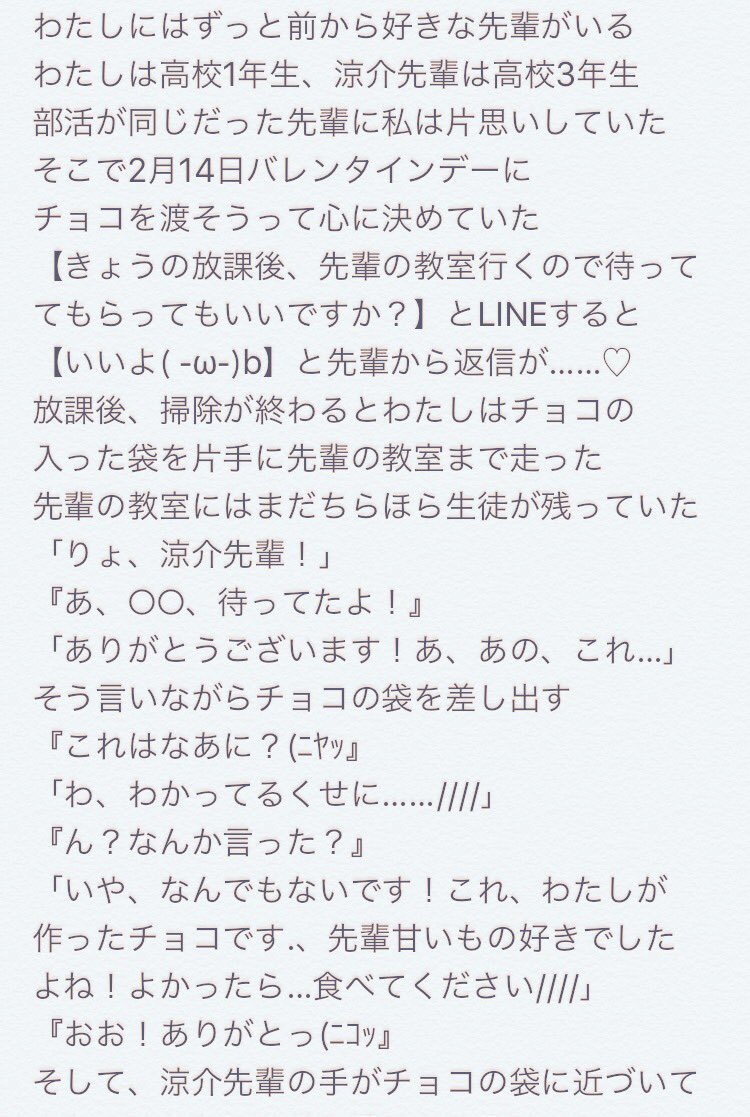 わたしにはずっと前から好きな先輩がいる
わたしは高校1年生、涼介先輩は高校3年生
部活が同じだった先輩に私は片思いしていた
そこで2月14日バレンタインデーに
チョコを渡そうって心に決めていた
【きょうの放課後、先輩の教室行くので待って
てもらってもいいですか？】とLINEすると
【いいよ( -ω-)b】と先輩から返信が……♡
放課後、掃除が終わるとわたしはチョコの
入った袋を片手に先輩の教室まで走った
先輩の教室にはまだちらほら生徒が残っていた
「りょ、涼介先輩！」
『あ、〇〇、待ってたよ！』
「ありがとうございます！あ、あの、これ…」
そう言いながらチョコの袋を差し出す
『これはなあに？(ﾆﾔｯ』
「わ、わかってるくせに……////」
『ん？なんか言った？』
「いや、なんでもないです！これ、わたしが
作ったチョコです.、先輩甘いもの好きでした
よね！よかったら…食べてください////」
『おお！ありがとっ(ﾆｺｯ』
そして、涼介先輩の手がチョコの袋に近づいて